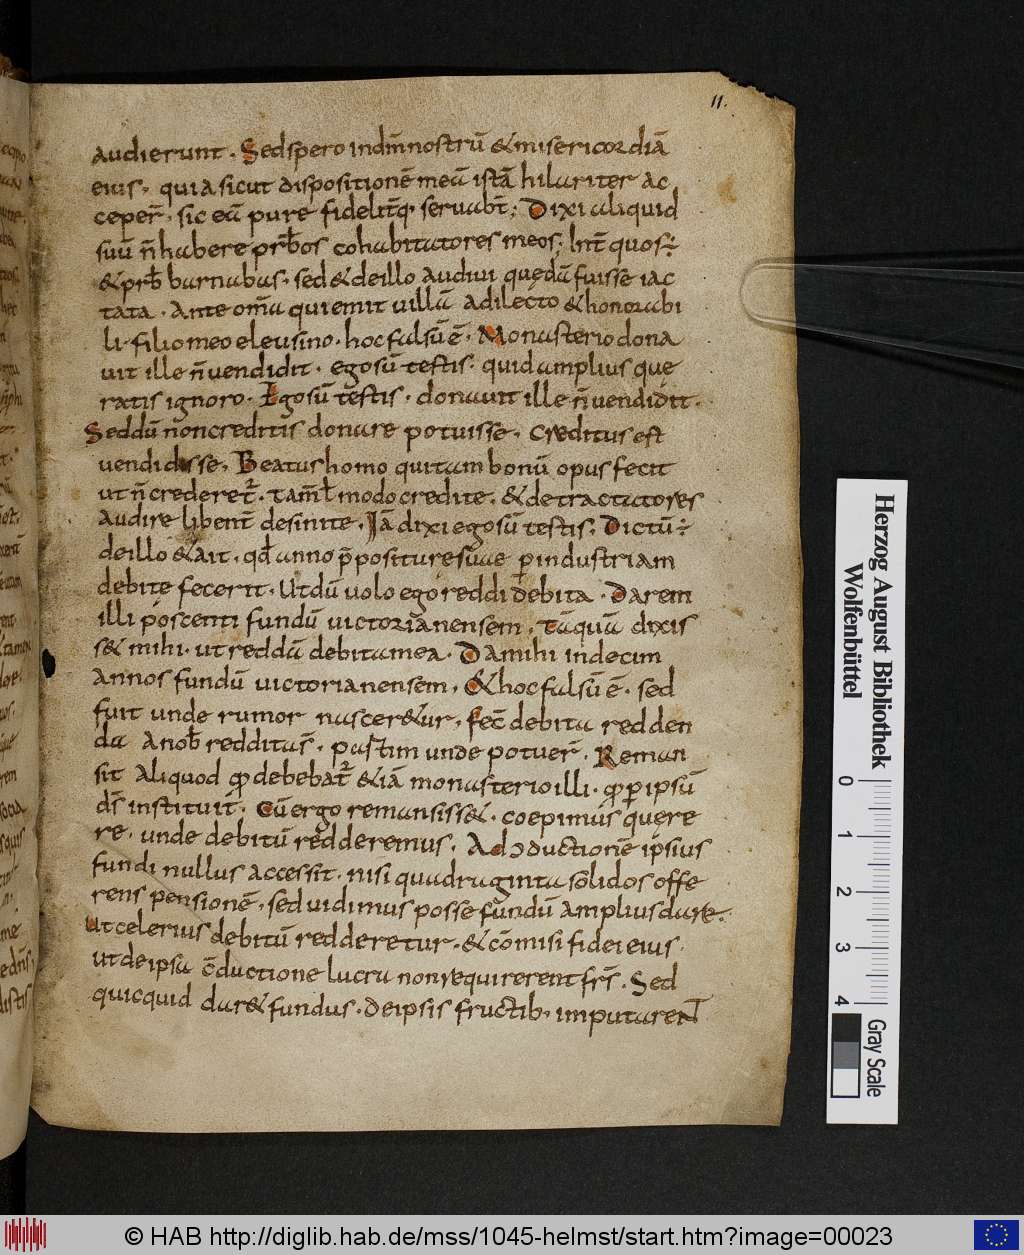 11.
audierunt. Sed spero in dm̄ nostrū & misericordiā
eius, quia sicut dispositionē meā istā hilariter ac
ceper̄, sic eā pure fidelit̄ q; seruabt̄; Dixi aliquid
suū n̄ habere prb̄os cohabitatores meos; Int̄ quos ÷
& prb̄ barnabas, sed & de illo audiui quędā fuisse iac
tata. Ante om̄a qui emit uillā a dilecto & honorabi
li filio meo eleusino, hoc falsū ē. Monasterio dona
uit ille n̄ uendidit. ego sū testis. quid amplius que
ratis ignoro. Ego sū testis. donauit ille n̄ uendidit.
Sed dū non creditis donare potuisse. Creditus est
uendidisse, Beatus homo qui tam bonū opus fecit
ut n̄ crederet᷑. tam̄ ł modo credite, & detractatores
audire libent̄ desinite. Iā dixi ego sū testis; Dictū ÷
de illo & ait. qđ anno p̄positure suae p industriam
debite fecerit. Ut dū uolo ego reddi debita. Darem
illi poscenti fundū uictorianensem, tāquā dixis
s& mihi. ut reddā debita mea. Da mihi in decim
annos fundū uictorianensem, & hoc falsū ē. sed
fuit unde rumor nascer&ur. fec̄ debita redden
da A nob̄ reddita s̄. partim unde potuer̄. Reman
sit aliquod qđ debebat᷑ & iā monasterio illi. qđ p ipsū
ds̄ instituit. Cū ergo remansiss&. coepimus quere
re. unde debitū redderemus. Ad ɔductionē ipsius
fundi nullus accessit. nisi quadraginta solidos offe
rens pensionē. sed uidimus posse fundū amplius dare.
Ut celerius debitū redderetur. & cōmisi fidei eius.
ut de ipsa cōductione lucra non requirerent frs̄. Sed
quicquid dar& fundus. de ipsis fructib; imputarent
Herzog August Bibliothek
Wolfenbüttel
0 1 2 3 4
Gray Scale
© HAB http://diglib.hab.de/mss/1045-helmst/start.htm?image=00023